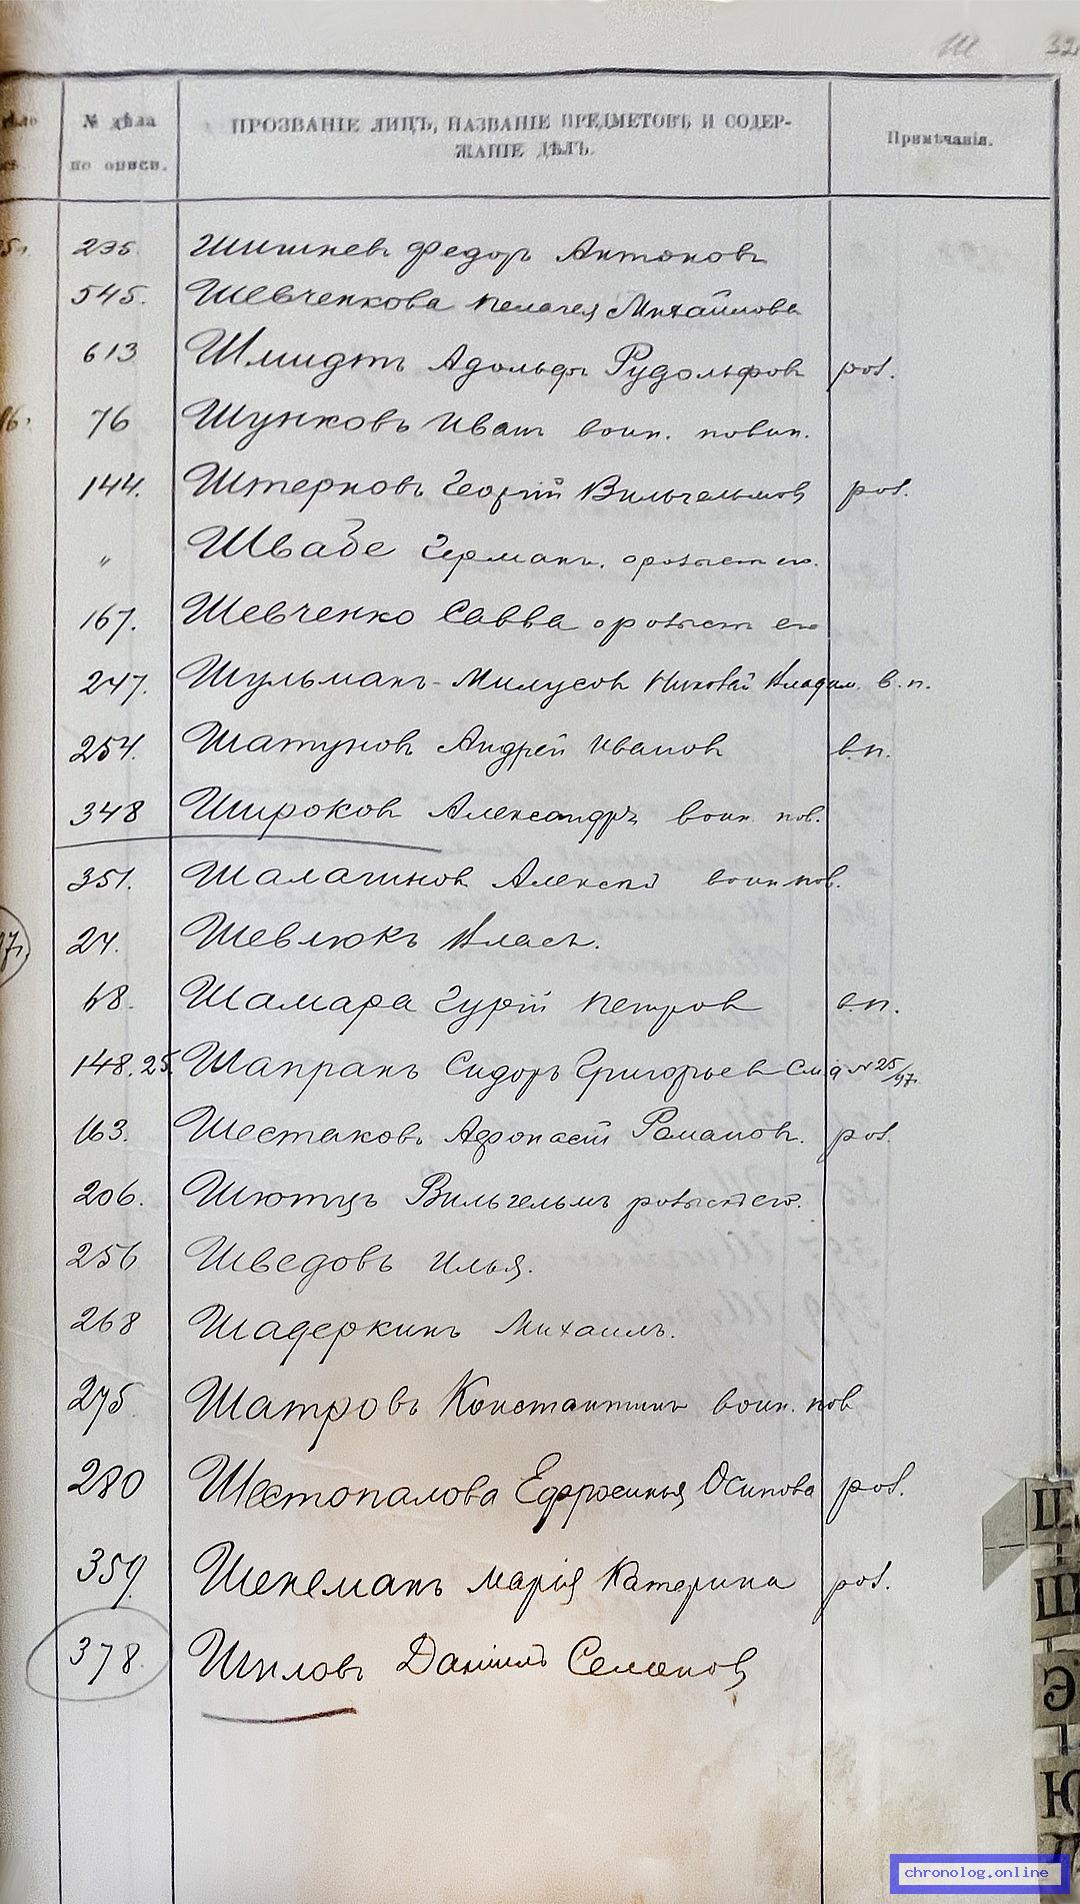 Ш 32
№ дѣла по описи.
ПРОЗВАНІЕ ЛИЦЪ, НАЗВАНІЕ ПРЕДМЕТОВЪ И СОДЕР-
ЖАНІЕ ДѢЛЪ.
Примѣчанія.
235. Шишневъ Федоръ Антоновъ
545. Шевченкова Пелагея Михайлова
613 Шмидтъ Адольфъ Рудольфовъ роз.
76 Шунковъ Иванъ воин. повин.
144. Штерновъ Георгій Вильгельмов роз.
" Швабе Германъ. о розыск его.
167. Шевченко Савва о розыск его
247. Шульманъ-Милусов Николай Владим. в.п.
254. Шатуновъ Андрей Иванов в.п.
348 Широков Александръ воин. пов.
351. Шалагинов Алексѣй воин пов.
24. Шевлюкъ Власъ.
68. Шамара Гурій Петров в.п.
148.25. Шапранъ Сидоръ Григорьев См. д № 25/97.
163. Шестаковъ Афонасій Романов. роз.
206. Шютцъ Вильгельмъ розыск его.
256 Шведовъ Илья.
268 Шадеркинъ Михаилъ.
275 Шатровъ Константинъ воин. пов
280 Шестопалова Ефросинья Осипова роз.
359. Шенеманъ Марія Катерина роз.
378. Шиловъ Даніилъ Семенов
Ш
Э
Ю
chronolog.online